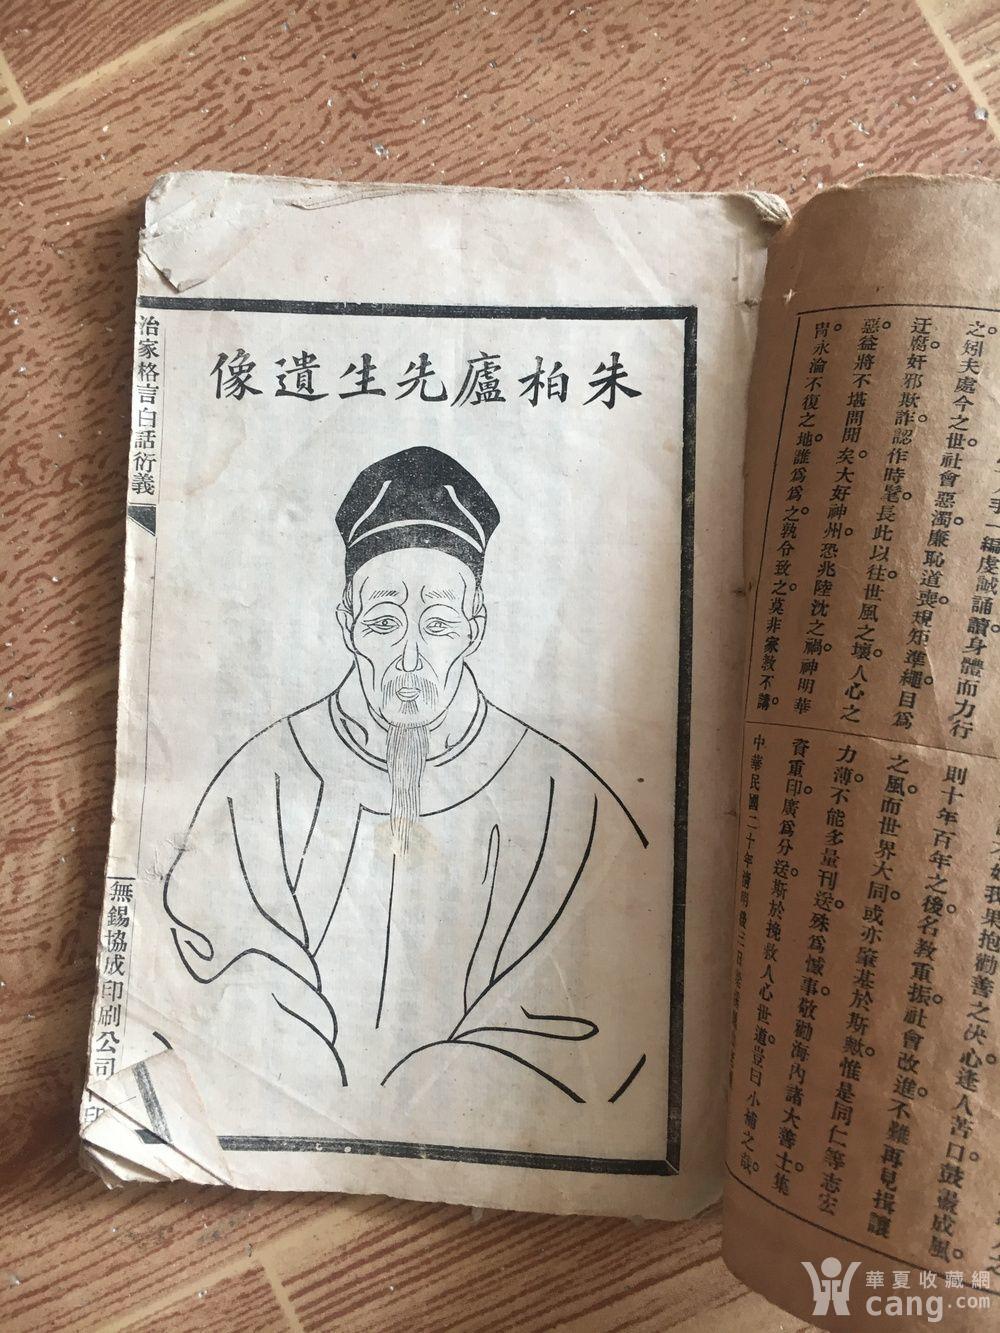 之。夫處今之世社會惡濁。廉恥道喪。規矩準繩。目爲
迂腐。奸邪欺詐。認作時髦。長此以往。世風之壞。人心之
惡。益將不堪問聞矣。大好神州。恐兆陸沈之禍。神明華
胄。永淪不復之地。誰爲爲之。孰令致之。莫非家教不講
則十年百年之後。名教重振。社會改進。不難再見揖讓
之風。而世界大同。或亦肇基於斯歟。惟是同仁等志宏
力薄。不能多量刊送。殊爲憾事。敬勸海內諸大善士。集
資重印。廣爲分送。斯於挽救人心世道。豈曰小補之哉。
中華民國二十年清明後三日
朱柏廬先生遺像
治家格言白話衍義
無錫協成印刷公司
印
華夏收藏網
cang.com